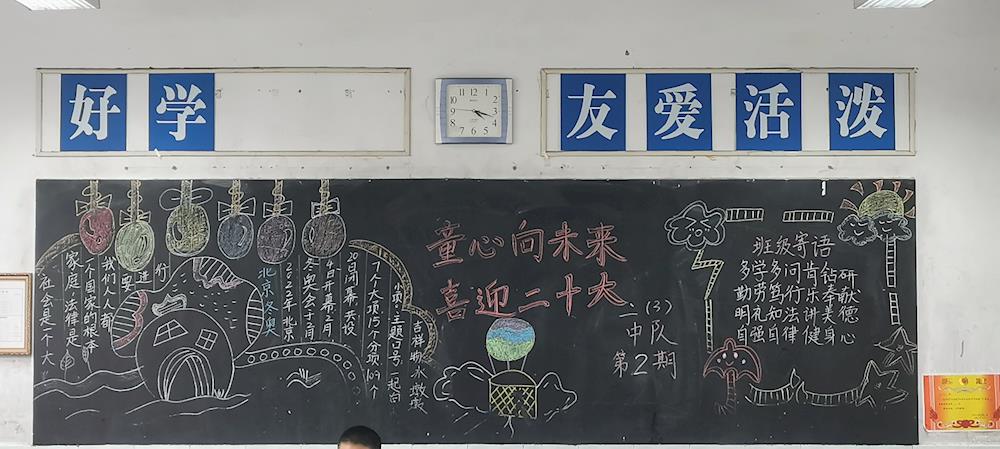 好学
友爱活泼
童心向未来
喜迎二十大
二(3)
中队
第2期
班级寄语
多学多问肯钻研
勤劳笃行乐奉献
明礼知法讲美德
自强自律健身心
社会是个大
家庭 法律是
一个国家的根本
我们人人都
要进行
北京冬奥
2022年北京
冬奥会于2月
4日开幕 2月
20日闭幕 共设
7个大项15个分项109个
小项。主题口号:一起向
吉祥物冰墩墩